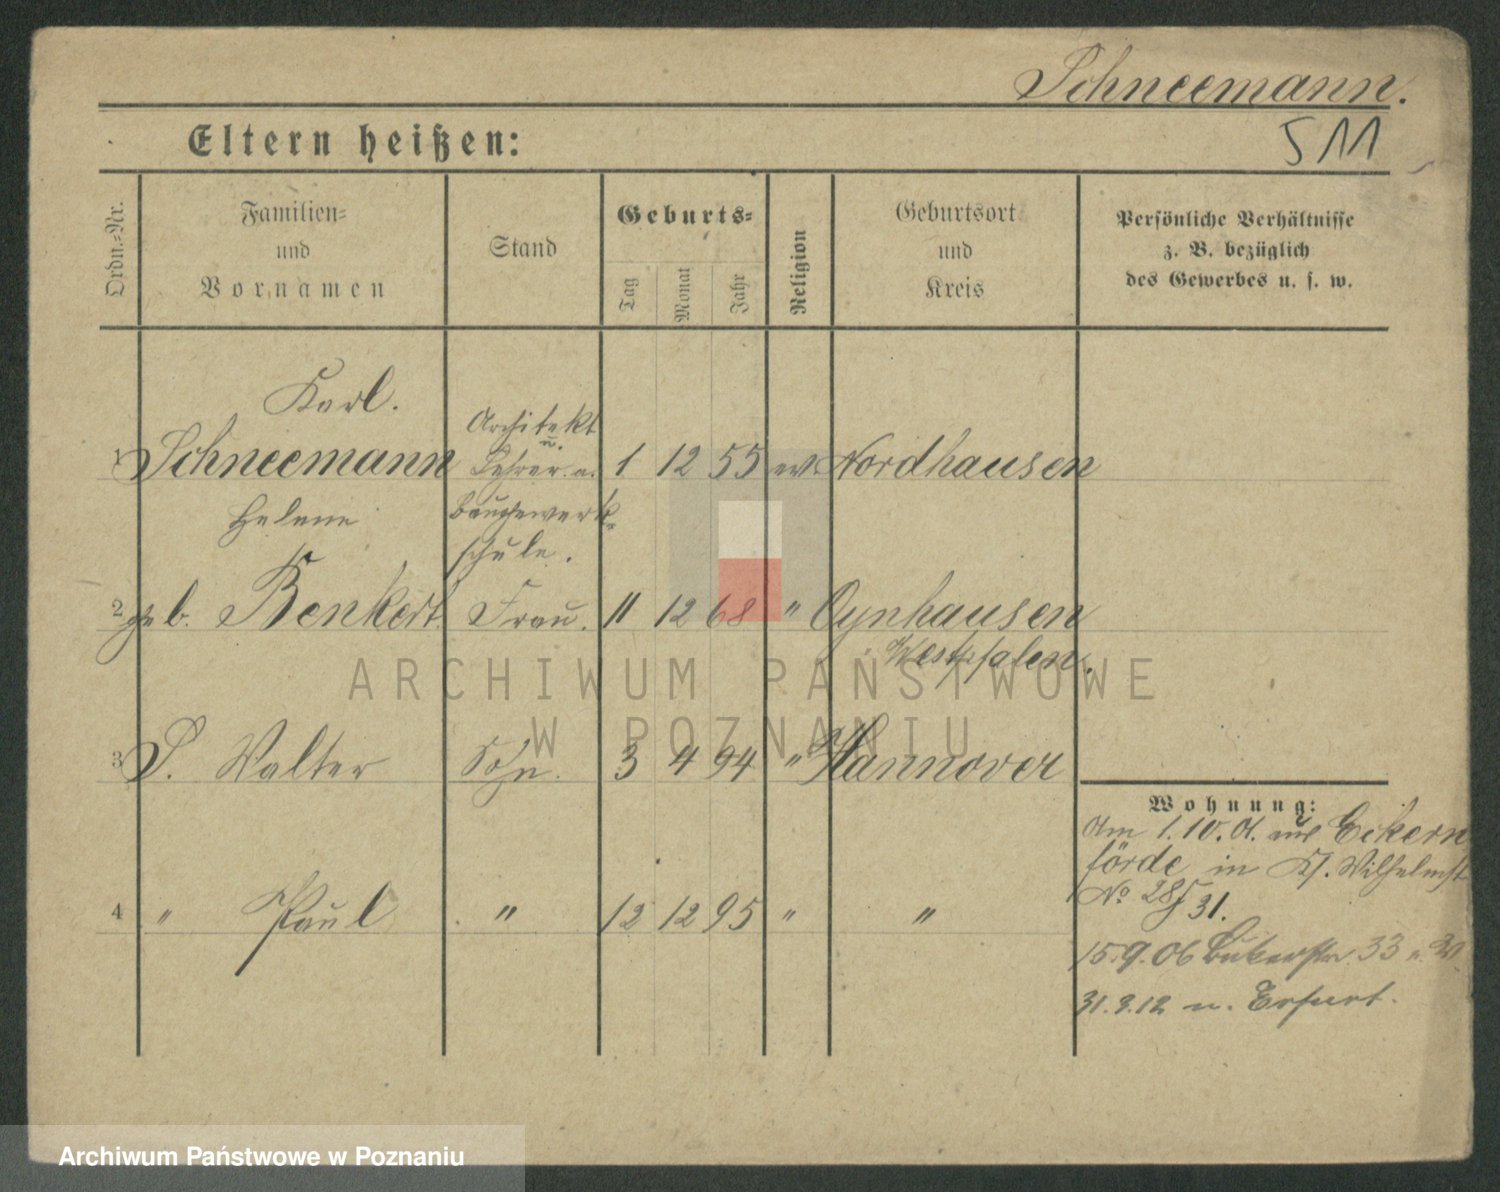 Schneemann.
511
Eltern heißen:
Ordn.=Nr.
Familien=
und
Vornamen
Stand
Geburts=
Tag
Monat
Jahr
Religion
Geburtsort
und
Kreis
Persönliche Verhältnisse
z. B. bezüglich
des Gewerbes u. s. w.
Karl.
Architekt
u.
1 Schneemann Lehrer a. 1 12 55 ev. Nordhausen
Helene Baugewerk-
schule.
2 geb. Benkert Frau. 11 12 68 " Oynhausen
Westfalen.
3 S. Walter Sohn. 3 4 94 " Hannover
4 " Paul " 12 12 95 " "
Wohnung:
Am 1.10.01. aus Eckern
förde in Wilhelmst
No 28
31.
15.9.06 33
31.3.12 n. Erfurt.
ARCHIWUM PAŃSTWOWE
W POZNANIU
Archiwum Państwowe w Poznaniu